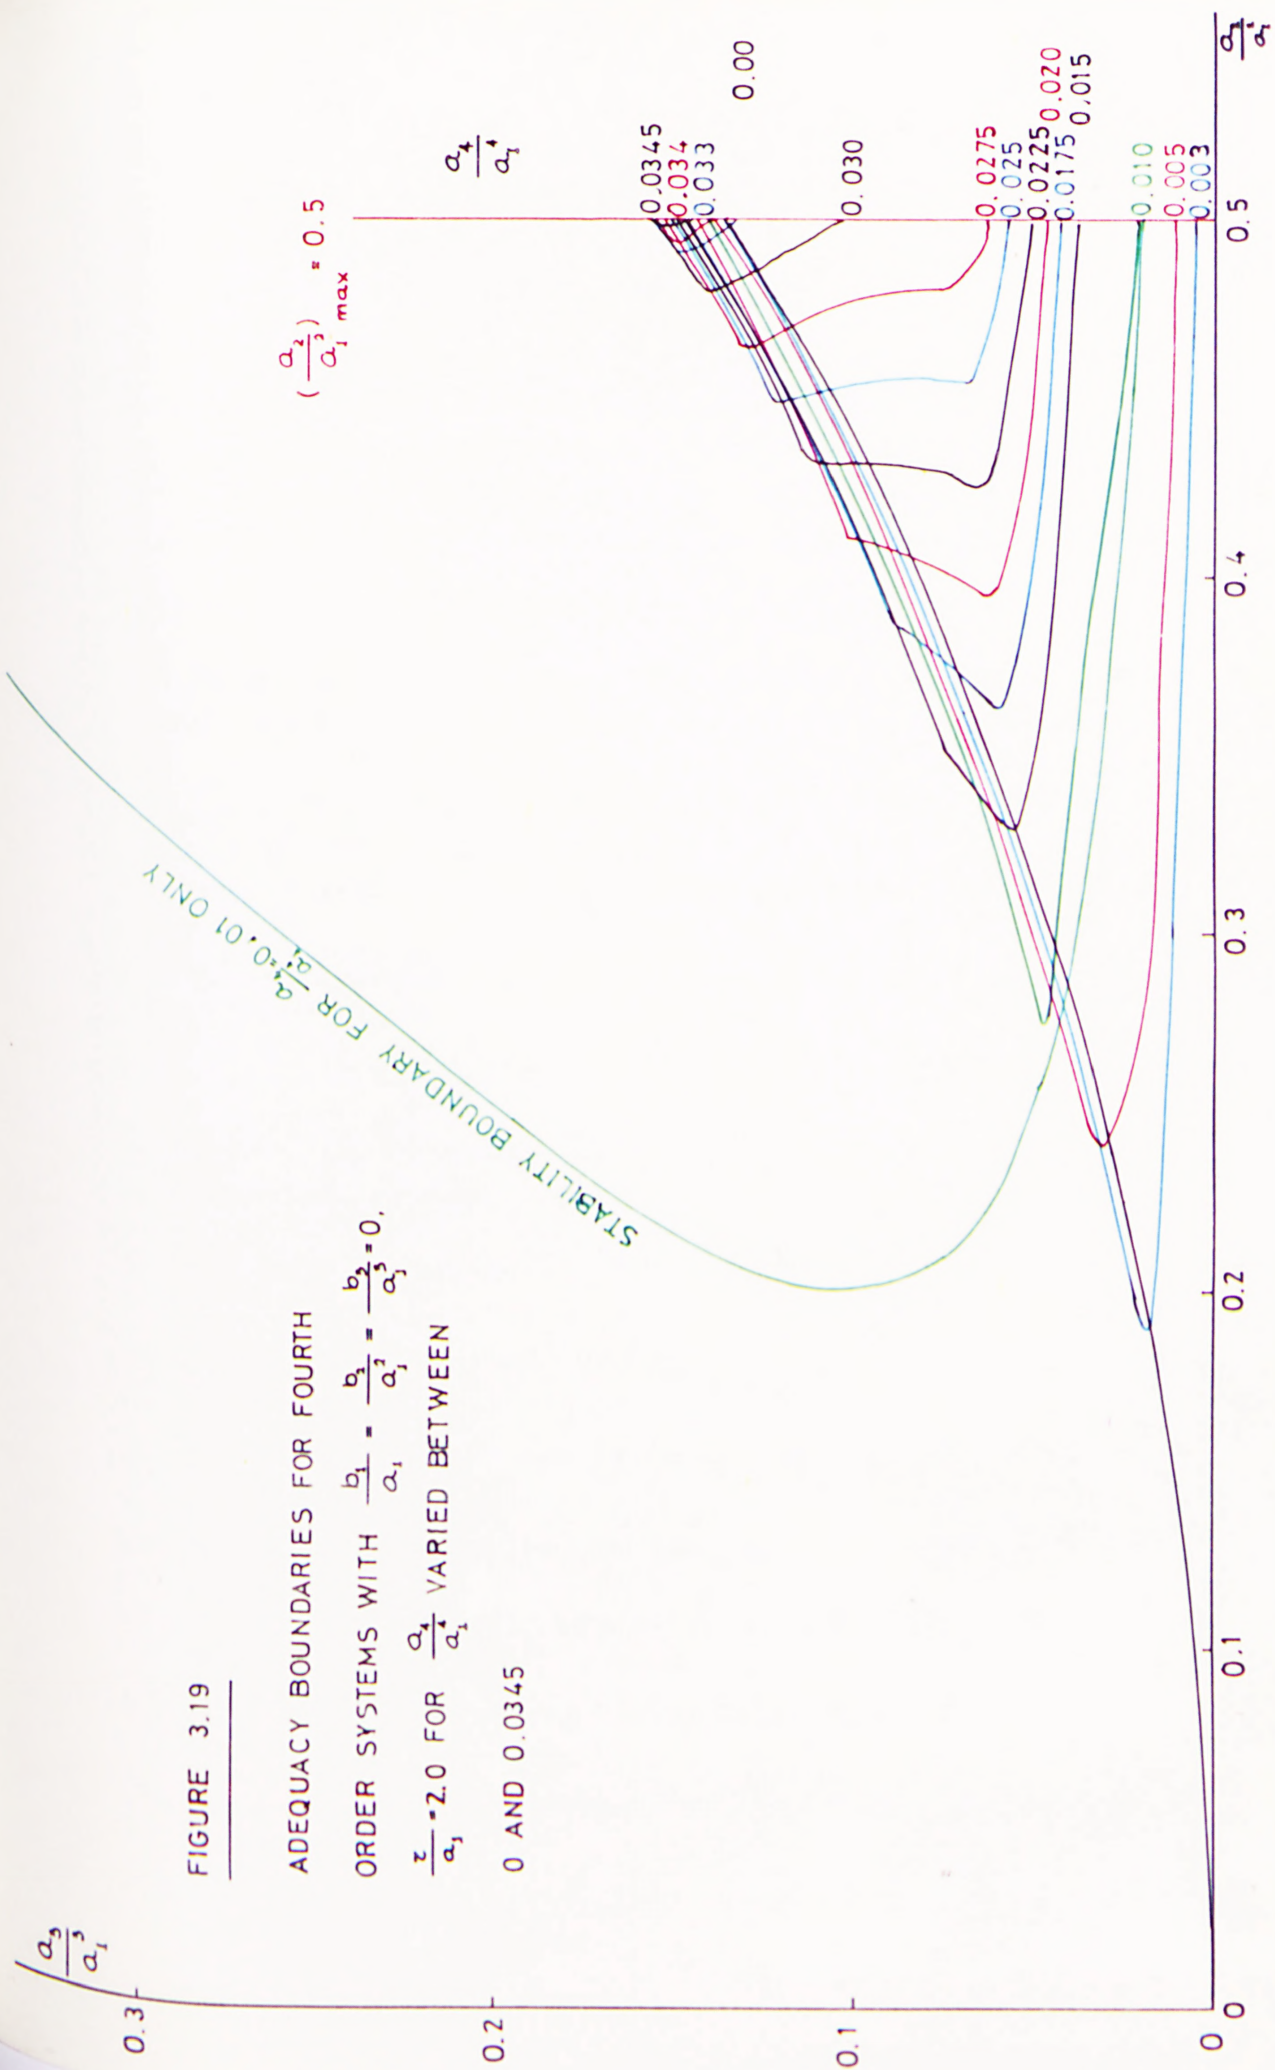 FIGURE 3.19
ADEQUACY BOUNDARIES FOR FOURTH
ORDER SYSTEMS WITH b₁/a₁ = b₂/a₁² = b₃/a₁³ = 0,
τ/a₁ = 2.0 FOR a₄/a₁⁴ VARIED BETWEEN
0 AND 0.0345
STABILITY BOUNDARY FOR a₄/a₁⁴ = 0.01 ONLY
(a₂/a₁²) max = 0.5
a₄/a₁⁴
0.0345
0.034
0.033
0.00
0.030
0.0275
0.025
0.0225
0.020
0.0175
0.015
0.010
0.005
0.003
a₃/a₁³
0.3
0.2
0.1
0
0
0.1
0.2
0.3
0.4
0.5
a₂/a₁²